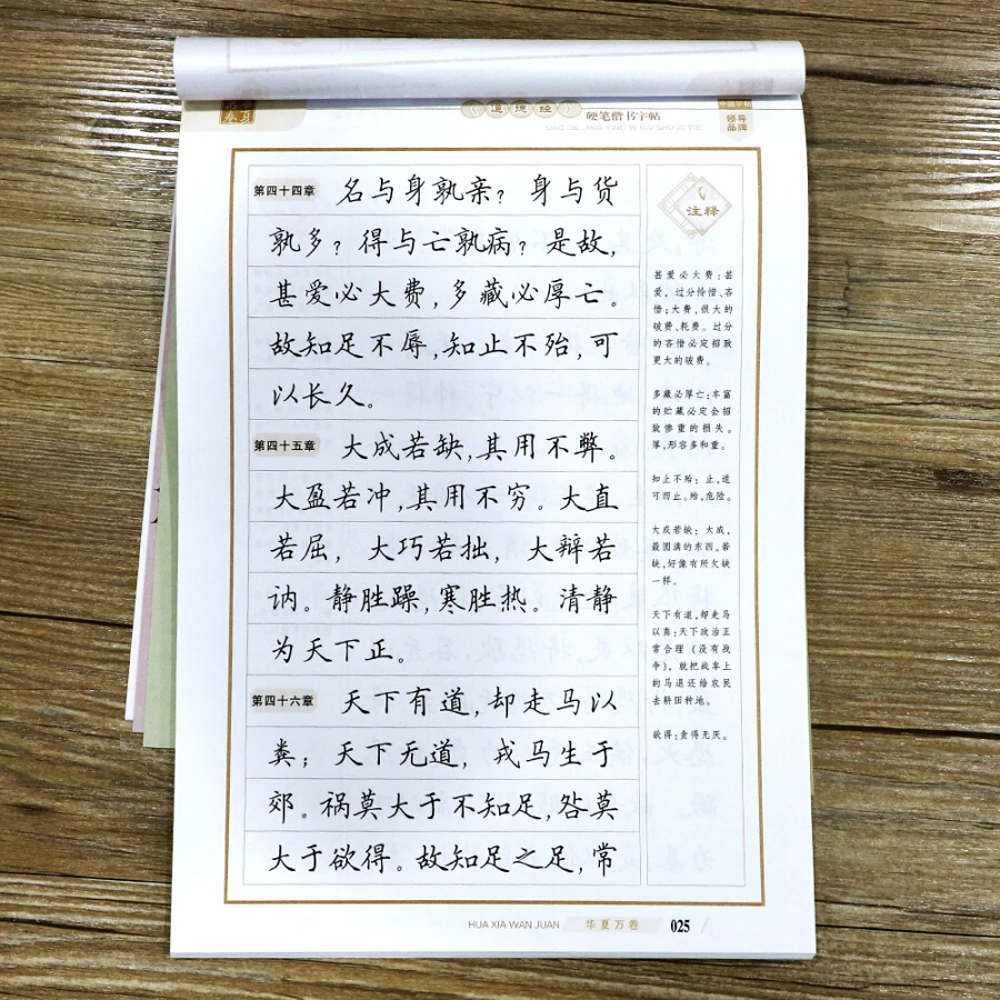 道德经
硬笔楷书字帖
DAO DE JING YING BI KAI SHU ZI TIE
领导
品牌
第四十四章 名与身孰亲?身与货
孰多?得与亡孰病?是故,
甚爱必大费,多藏必厚亡。
故知足不辱,知止不殆,可
以长久。
第四十五章 大成若缺,其用不弊。
大盈若冲,其用不穷。大直
若屈,大巧若拙,大辩若
讷。静胜躁,寒胜热。清静
为天下正。
第四十六章 天下有道,却走马以
粪;天下无道,戎马生于
郊。祸莫大于不知足,咎莫
大于欲得。故知足之足,常
注释
甚爱必大费:甚
爱,过分怜惜、吝
惜;大费,很大的
破费、耗费。过分
的吝惜必定招致
更大的破费。
多藏必厚亡:丰富
的贮藏必定会招
致惨重的损失。
厚,形容多和重。
知止不殆:止,适
可而止。殆,危险。
大成若缺:大成,
最圆满的东西。若
缺,好像有所欠缺
一样。
天下有道,却走马
以粪:天下政治正
常合理(没有战
争),就把战车上
的马退还给农民
去耕田种地。
欲得:贪得无厌。
HUA XIA WAN JUAN 华夏万卷 025